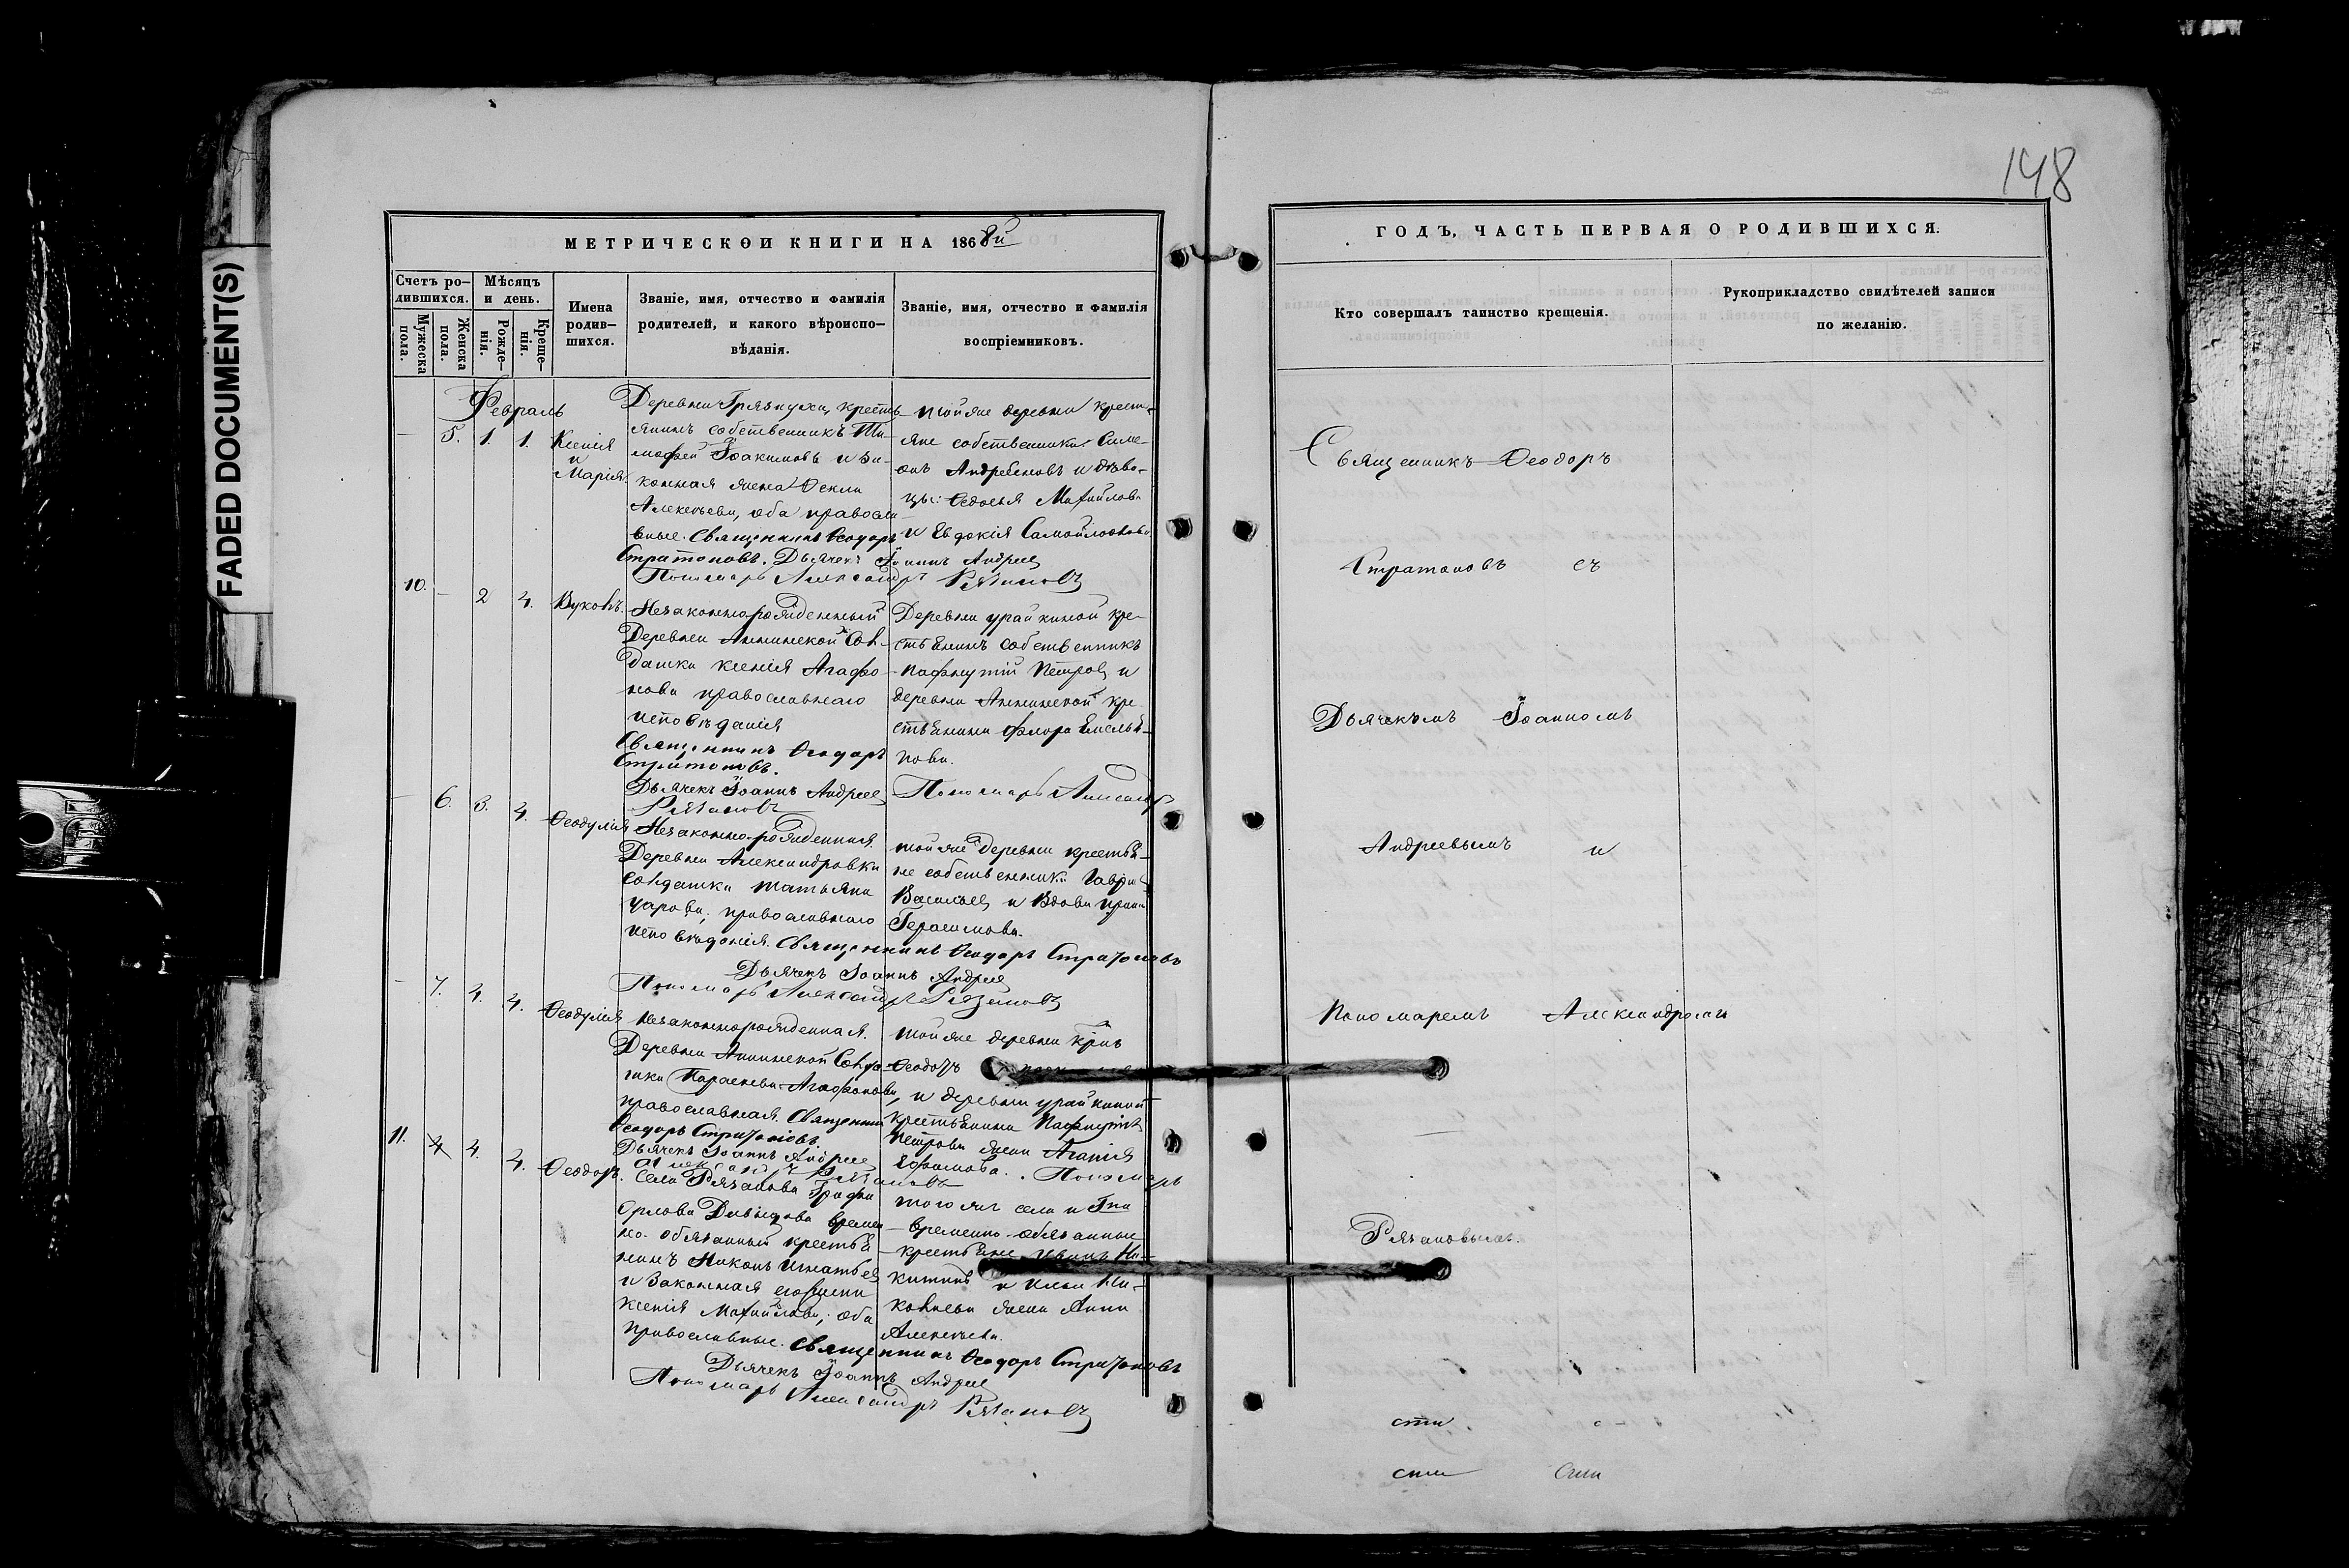 148
FADED DOCUMENT(S)
МЕТРИЧЕСКОЙ КНИГИ НА 1868й
Счетъ ро-
дившихся.
Мужеска
пола.
Женска
пола.
Мѣсяцъ
и день.
Рожде-
нія.
Креще-
нія.
Имена
родив-
шихся.
Званіе, имя, отчество и фамилія
родителей, и какого вѣроиспо-
вѣданія.
Званіе, имя, отчество и фамилія
воспріемниковъ.
Февраль
5. 1. 1. Ксенія
и
Марія.
Деревни Грязнухи, кресть-
янинъ собственникъ Ти-
мофей Іоакимовъ и за-
конная жена Ѳекла
Алексѣева, оба православ
вные. Священникъ Ѳеодоръ
Стратоновъ. Дьячекъ Іоаннъ Андреев
Пономарь Александръ Рязановъ
той же деревни кресть-
яне собственники Симе-
онъ Андреяновъ и дѣво-
цы: Ѳедосья Михайлова
и Евдокія Самойлова
10. 2 4. Вуколъ.
Незаконнорожденный
Деревни Аннинской Сол-
датки Ксенія Агафо-
нова православнаго
исповѣданія
Священникъ Ѳеодоръ
Стратоновъ.
Дьячекъ Іоаннъ Андреев
Рязановъ
Деревни урайкиной кре-
стьянинъ собственникъ
Пафнутій Петров и
деревни Аннинской кре
стьянина Флора Емелья-
нова.
Пономарь Александр
6. 3. 4. Ѳеодулія
Незаконнорожденная.
Деревни Александровки
Солдатки Татьяна
Уарова; православнаго
исповѣданія. Священникъ Ѳеодоръ Стратоновъ
Дьячекъ Іоаннъ Андреев
Пономарь Александръ Рязановъ
той же деревни крестья-
не собственники Гаври
Васильев и Вдова Ирина
Герасимова.
7. 4. 4. Ѳеодулія
Незаконнорожденная.
Деревни Аннинской Солда-
тки Параскева Агафонова
православная. Священник
Ѳеодоръ Стратоновъ.
Дьячекъ Іоаннъ Андреев
Александръ Рязановъ
той же деревни крнъ
Ѳеодотъ
и деревни урайкиной
крестьянина Пафнутія
Петрова жена Агапія
Ефимова. Пономарь
11. 4. 4. Ѳеодоръ.
Села Рязанова Графа
Орлова Давыдова времен
но-обязанный крестья
нинъ Никонъ Игнатьев
и Законная его жена
Ксенія Михайлова; оба
Православные. Священникъ Ѳеодоръ Стратоновъ
Дьячекъ Іоаннъ Андреев
Пономарь Александръ Рязановъ
того же села и Гна
временно-обязанные
крестьяне Иванъ Ни-
китинъ и Ильи Ни-
жена Анна
Алексѣева.
ГОДЪ, ЧАСТЬ ПЕРВАЯ О РОДИВШИХСЯ.
Кто совершалъ таинство крещенія.
Рукоприкладство свидѣтелей записи
по желанію.
Священникъ Ѳеодоръ
Стратоновъ съ
Дьячкомъ Іоанномъ
Андреевымъ и
Пономаремъ Александромъ
Рязановымъ.